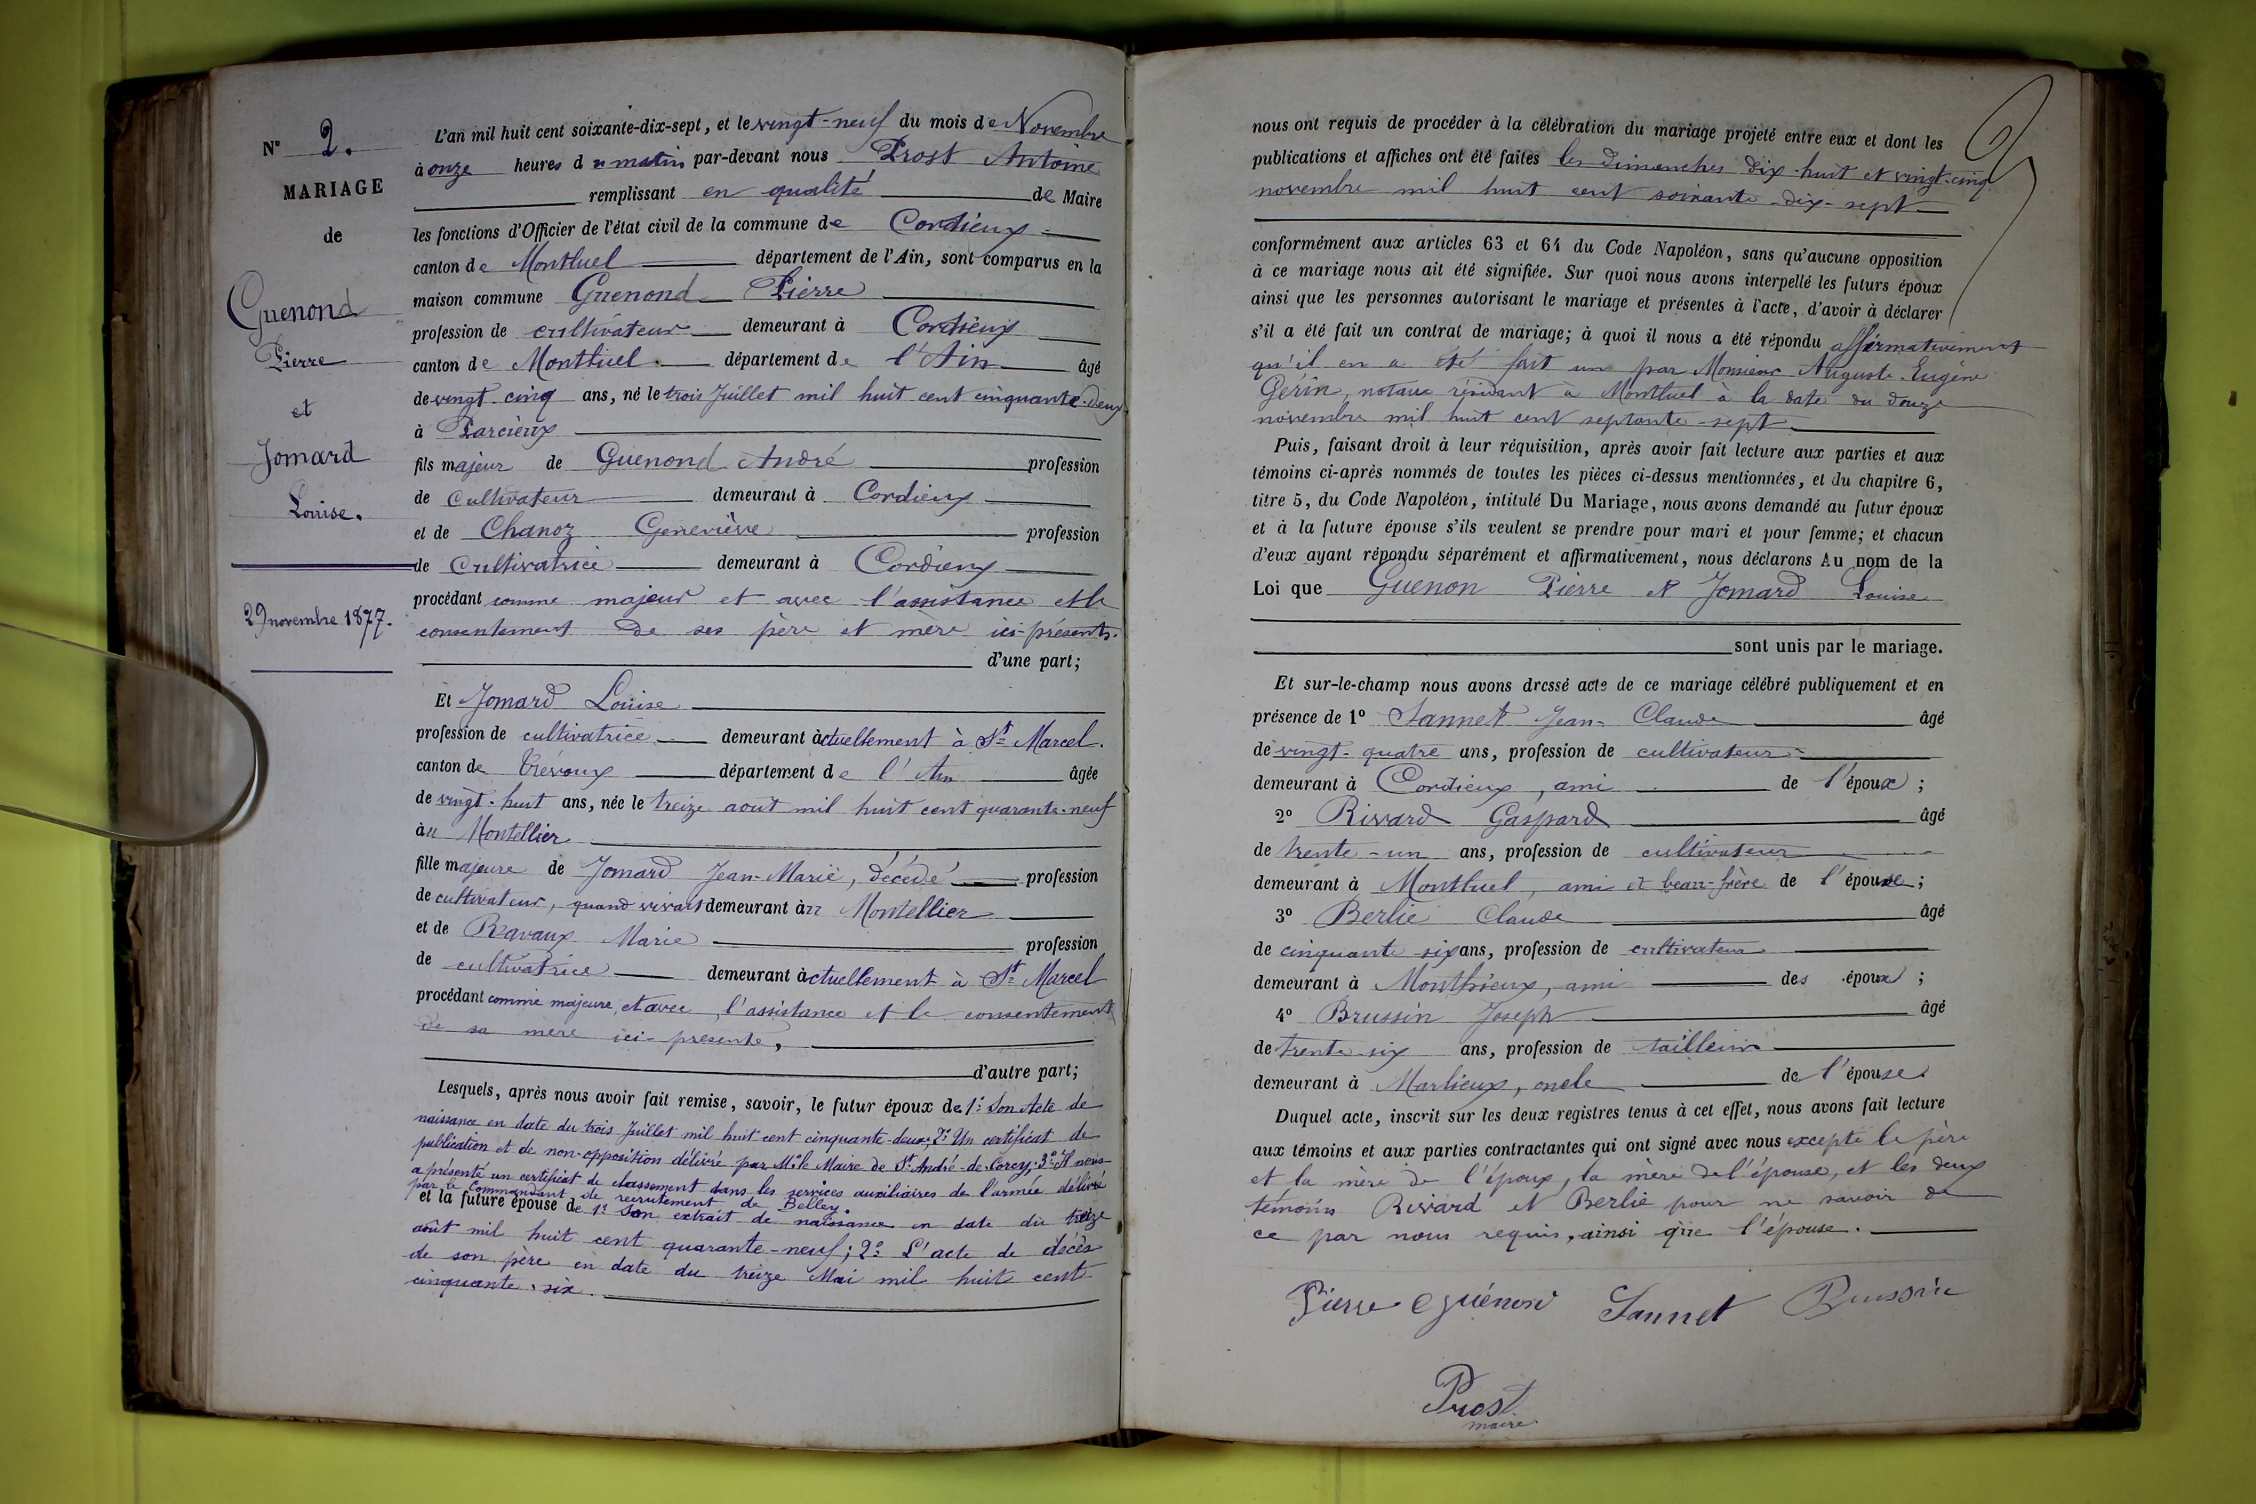 N° 2.
MARIAGE
de
Guenond
Pierre
et
Jomard
Louise.
29 novembre 1877.
L'an mil huit cent soixante-dix-sept, et le vingt-neuf du mois de Novembre
à onze heures du matin par-devant nous Prost Antoine
remplissant en qualité de Maire
les fonctions d'Officier de l'état civil de la commune de Cordieux
canton de Montluel département de l'Ain, sont comparus en la
maison commune Guenond Pierre
profession de cultivateur demeurant à Cordieux
canton de Montluel département de l'Ain âgé
de vingt-cinq ans, né le trois Juillet mil huit cent cinquante-deux
à Parcieux
fils majeur de Guenond André profession
de Cultivateur demeurant à Cordieux
et de Chanoz Geneviève profession
de Cultivatrice demeurant à Cordieux
procédant comme majeur et avec l'assistance et le
consentement de ses père et mère ici-présents.
d'une part;
Et Jomard Louise
profession de cultivatrice demeurant àctuellement à St Marcel.
canton de Trévoux département de l'Ain âgée
de vingt-huit ans, née le treize août mil huit cent quarante-neuf
àu Montellier
fille majeure de Jomard Jean-Marie, décédé profession
de cultivateur, quand vivait demeurant àu Montellier
et de Ravaux Marie profession
de cultivatrice demeurant àctuellement à St Marcel
procédant comme majeure, et avec l'assistance et le consentement
de sa mère ici-présente,
d'autre part;
Lesquels, après nous avoir fait remise, savoir, le futur époux de 1° Son Acte de
naissance en date du trois Juillet mil huit cent cinquante-deux; 2° Un certificat de
publication et de non-opposition délivré par Mr le Maire de St André-de-Corcy; 3° Il nous
a présenté un certificat de classement dans les services auxiliaires de l'armée délivré
par le Commandant de recrutement de Belley.
et la future épouse de 1° Son extrait de naissance en date du treize
août mil huit cent quarante-neuf; 2° L'acte de décès
de son père en date du treize Mai mil huit cent
cinquante-six.
nous ont requis de procéder à la célébration du mariage projeté entre eux et dont les
publications et affiches ont été faites les dimanches dix-huit et vingt-cinq
novembre mil huit cent soixante-dix-sept
conformément aux articles 63 et 64 du Code Napoléon, sans qu'aucune opposition
à ce mariage nous ait été signifiée. Sur quoi nous avons interpellé les futurs époux
ainsi que les personnes autorisant le mariage et présentes à l'acte, d'avoir à déclarer
s'il a été fait un contrat de mariage; à quoi il nous a été répondu affirmativement
qu'il en a été fait un par Monsieur Auguste-Eugène
Gérin, notaire résidant à Montluel à la date du douze
novembre mil huit cent septante-sept
Puis, faisant droit à leur réquisition, après avoir fait lecture aux parties et aux
témoins ci-après nommés de toutes les pièces ci-dessus mentionnées, et du chapitre 6,
titre 5, du Code Napoléon, intitulé Du Mariage, nous avons demandé au futur époux
et à la future épouse s'ils veulent se prendre pour mari et pour femme; et chacun
d'eux ayant répondu séparément et affirmativement, nous déclarons Au nom de la
Loi que Guenon Pierre et Jomard Louise
sont unis par le mariage.
Et sur-le-champ nous avons dressé acte de ce mariage célébré publiquement et en
présence de 1° Sannet Jean-Claude âgé
de vingt-quatre ans, profession de cultivateur
demeurant à Cordieux, ami de l'époux;
2° Rivard Gaspard âgé
de trente-un ans, profession de cultivateur
demeurant à Montluel, ami et beau-frère de l'épouse;
3° Berlie Claude âgé
de cinquante-six ans, profession de cultivateur
demeurant à Monthieux, ami des époux;
4° Brussin Joseph âgé
de trente-six ans, profession de tailleur
demeurant à Marlieux, oncle de l'épouse.
Duquel acte, inscrit sur les deux registres tenus à cet effet, nous avons fait lecture
aux témoins et aux parties contractantes qui ont signé avec nous excepté le père
et la mère de l'époux, la mère de l'épouse, et les deux
témoins Rivard et Berlie pour ne savoir de
ce par nous requis, ainsi que l'épouse.
Pierre Guénond Sannet Brussin
Prost
maire